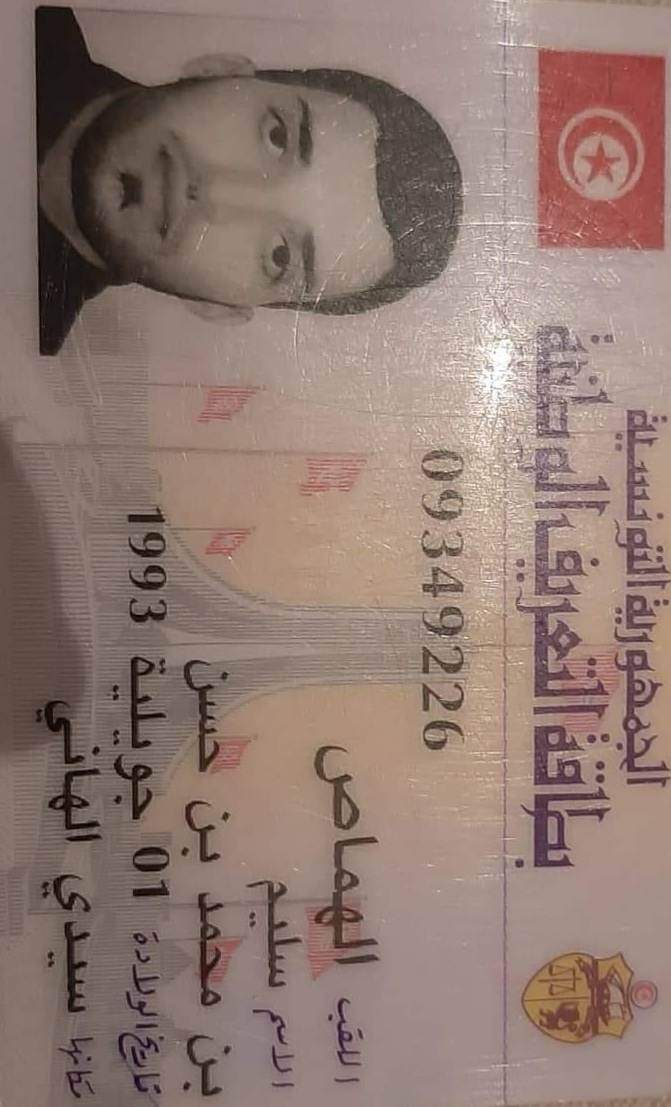 الجمهورية التونسية
بطاقة التعريف الوطنية
09349226
اللقب الهماص
الاسم سليم
بن محمد بن حسن
تاريخ الولادة 01 جويلية 1993
مكانها سيدي الهاني